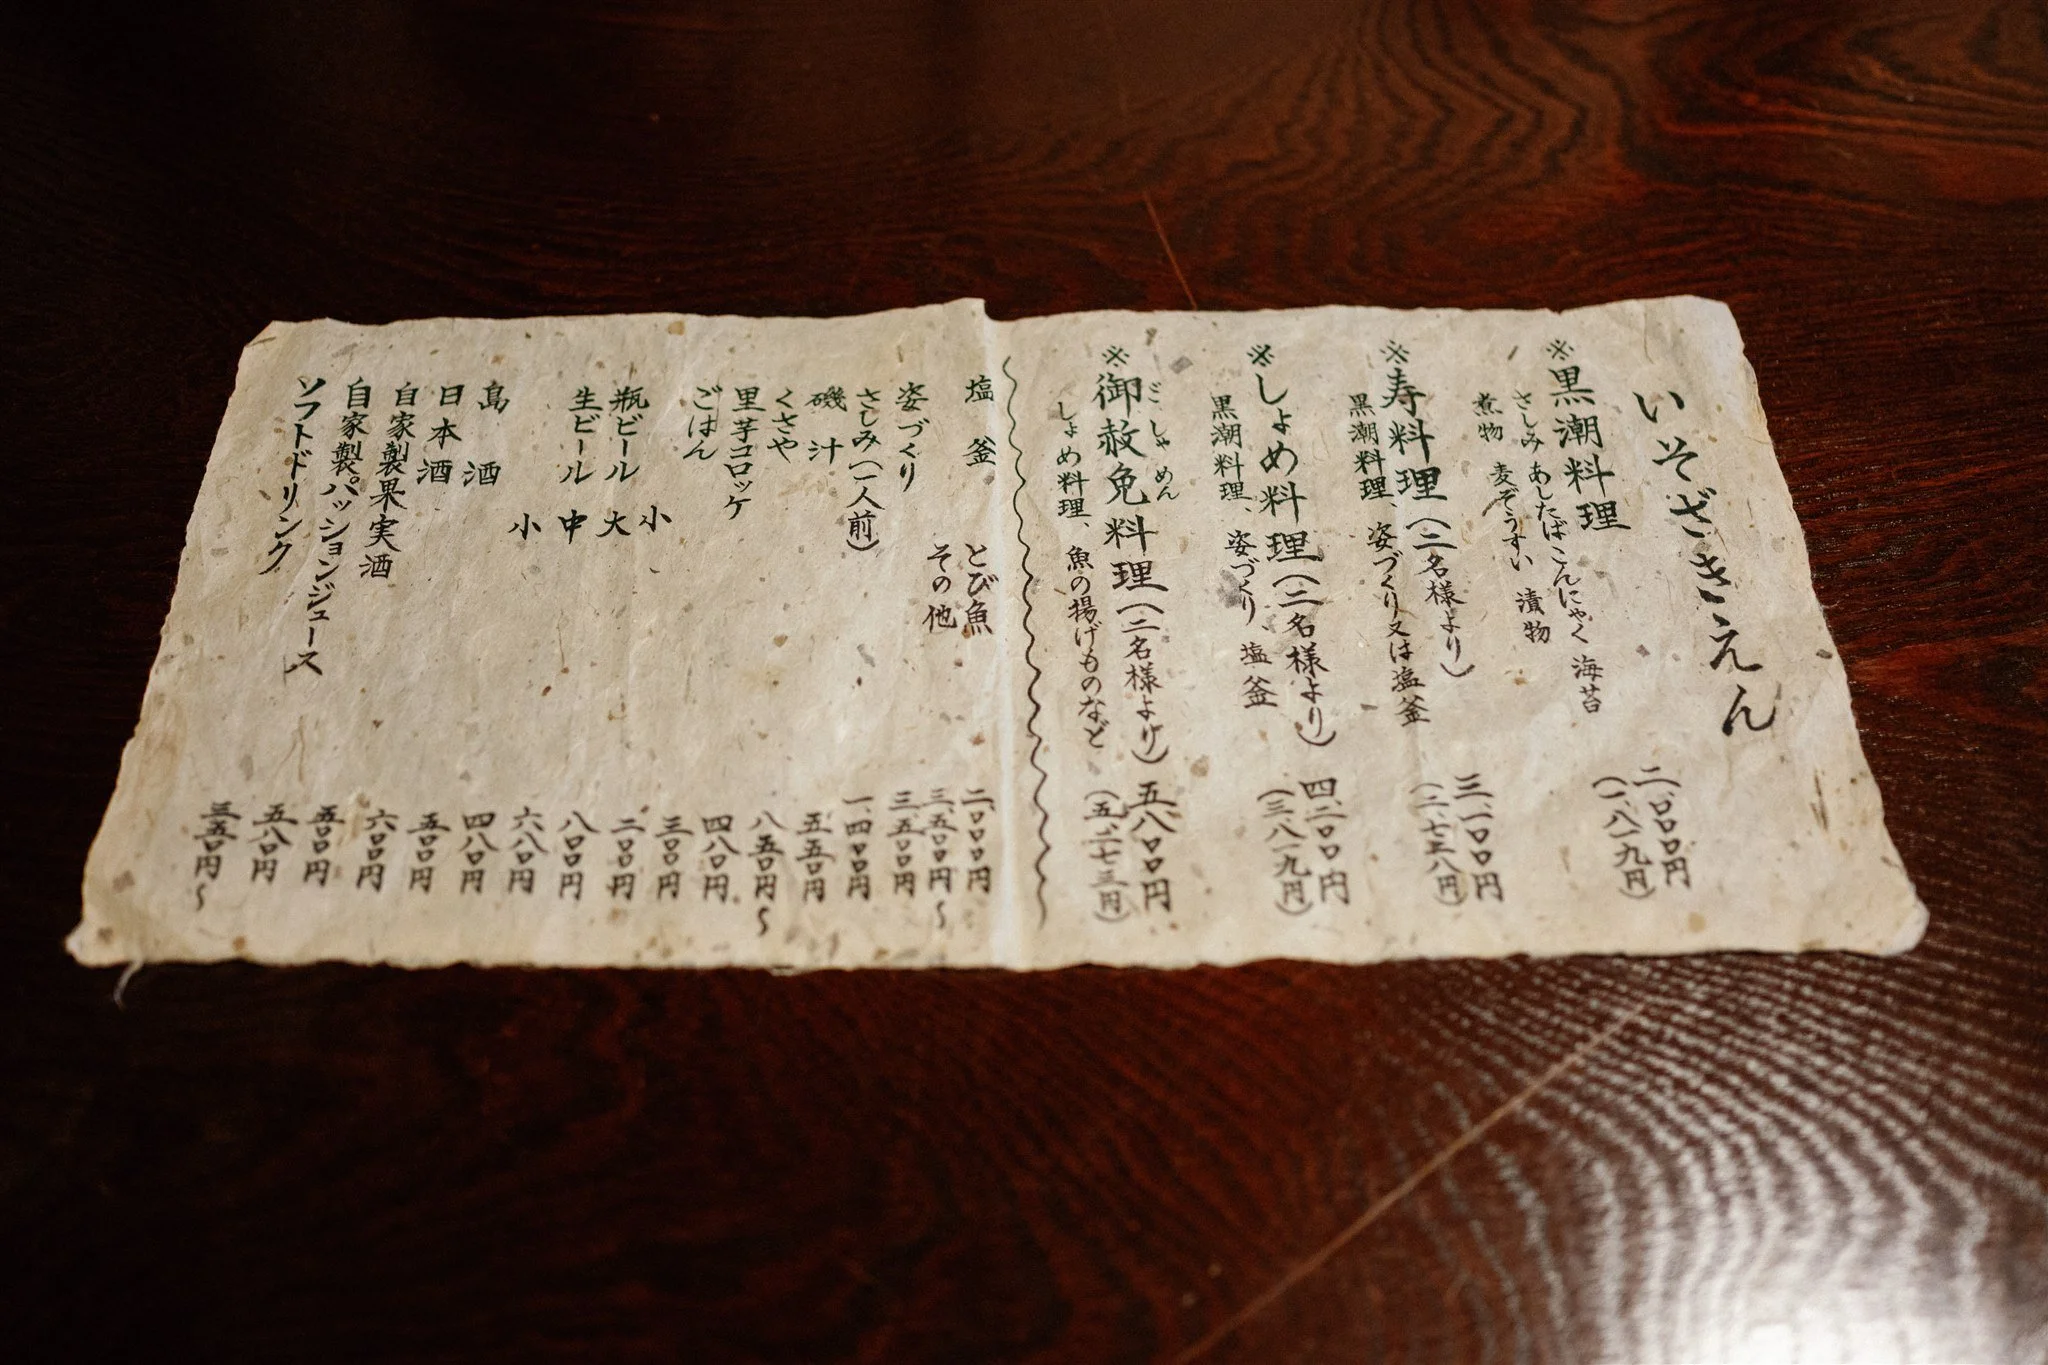 いそざきえん
※黒潮料理 二、〇〇〇円
さしみ あしたばこんにゃく 海苔 (一、八一九円)
煮物 麦ぞうすい 漬物
※寿料理(二名様より) 三、一〇〇円
黒潮料理、姿づくり又は塩釜 (二、七三八円)
※しょめ料理(二名様より) 四、二〇〇円
黒潮料理、姿づくり、塩釜 (三、八一九円)
ごしゃめん
※御赦免料理(二名様より) 五、八〇〇円
しょめ料理、魚の揚げものなど (五、二七三円)
塩釜 とび魚 二、〇〇〇円
その他 三、五〇〇円〜
姿づくり 三、五〇〇円
さしみ(一人前) 一、四〇〇円
磯汁 五五〇円
くさや 八五〇円〜
里芋コロッケ 四八〇円
ごはん 三〇〇円
瓶ビール 小 二〇〇円
大 八〇〇円
生ビール 中 六八〇円
小 四八〇円
島酒 五〇〇円
日本酒 六〇〇円
自家製果実酒 五〇〇円
自家製パッションジュース 五八〇円
ソフトドリンク 三五〇円〜